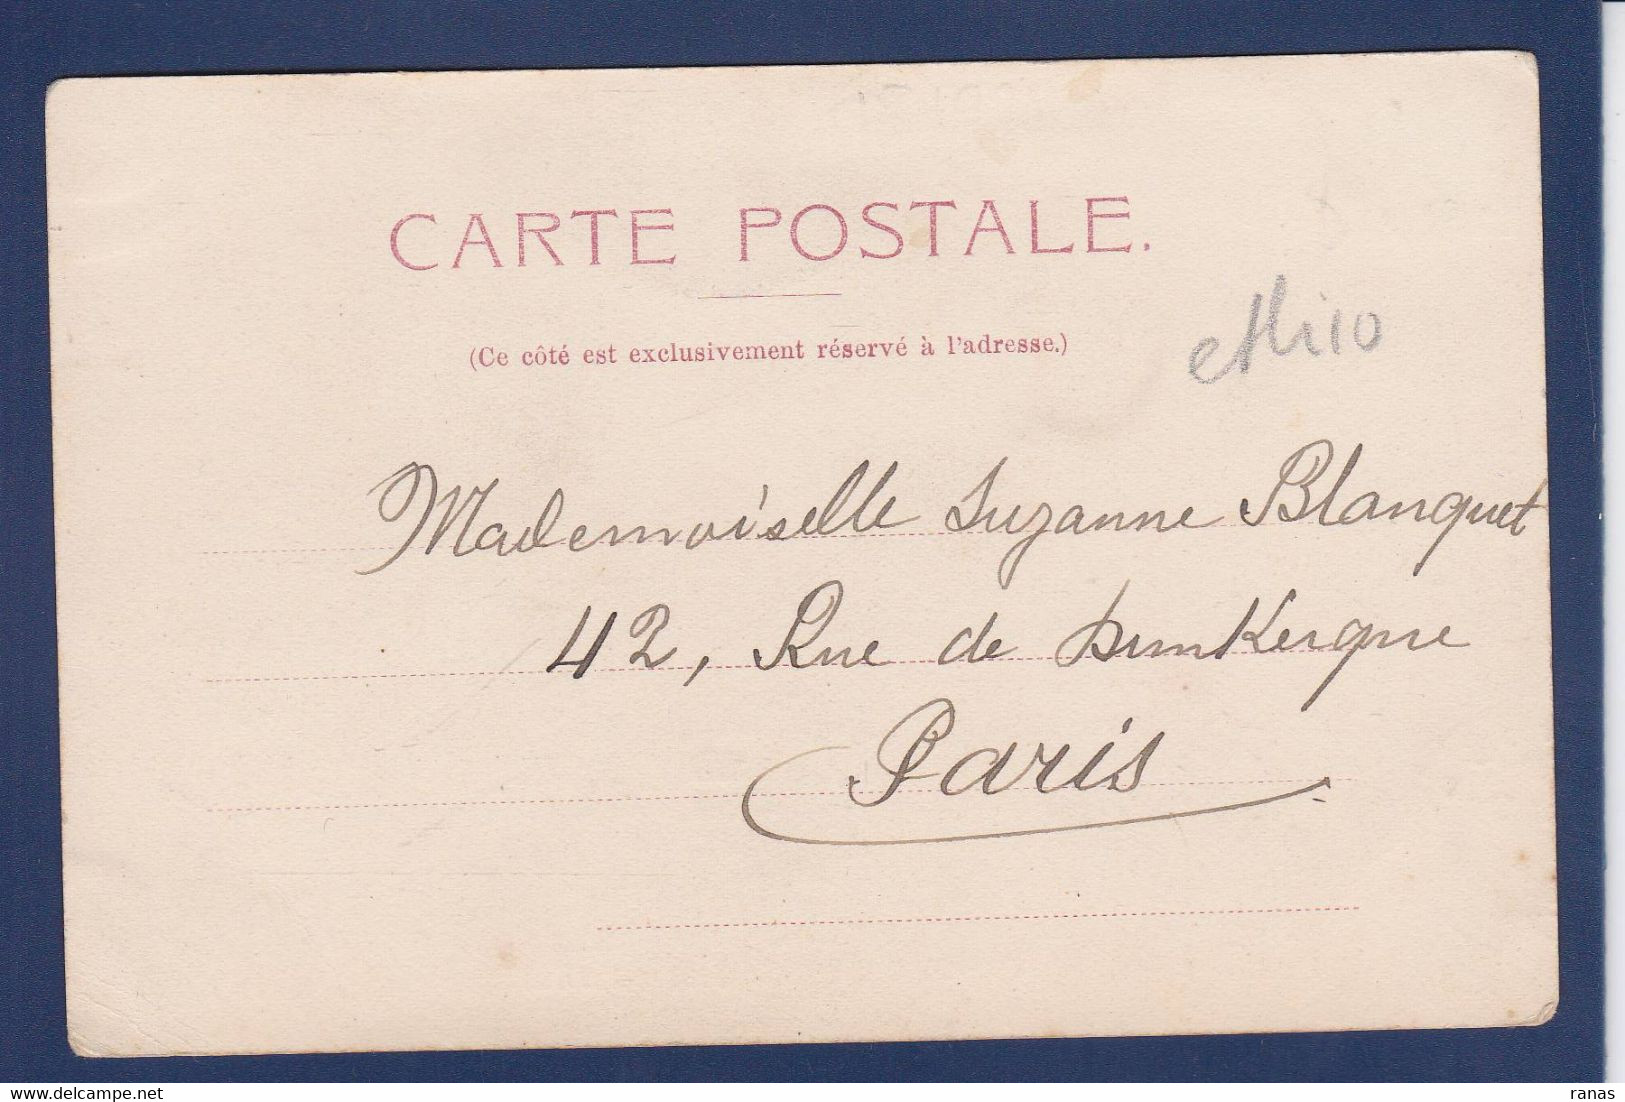 CARTE POSTALE.
(Ce côté est exclusivement réservé à l'adresse.)
Mademoiselle Suzanne Blanquet
42, Rue de Dunkerque
Paris
ranas